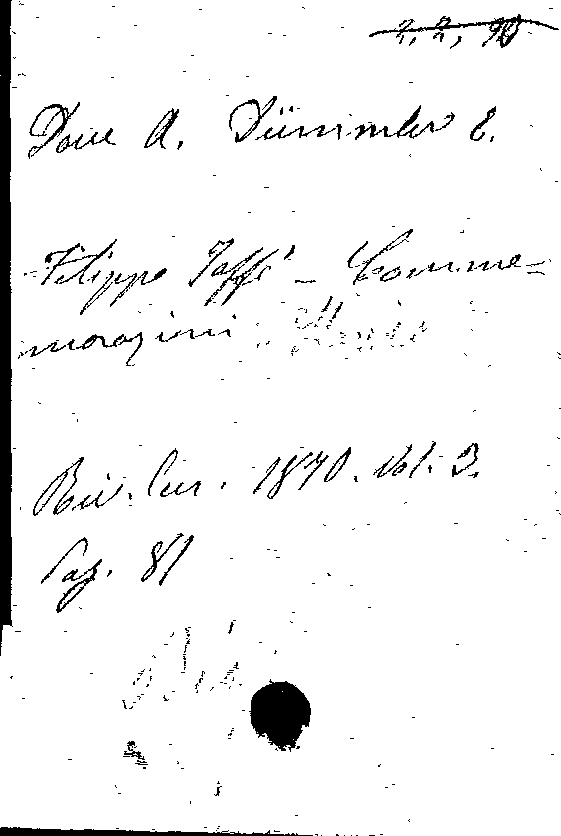 2, 2, 90
Dove A. Dümmler E.
Filippo Jaffé - Comme=
morazioni
Riv. Eur. 1870. Vol. 3.
Pag. 81